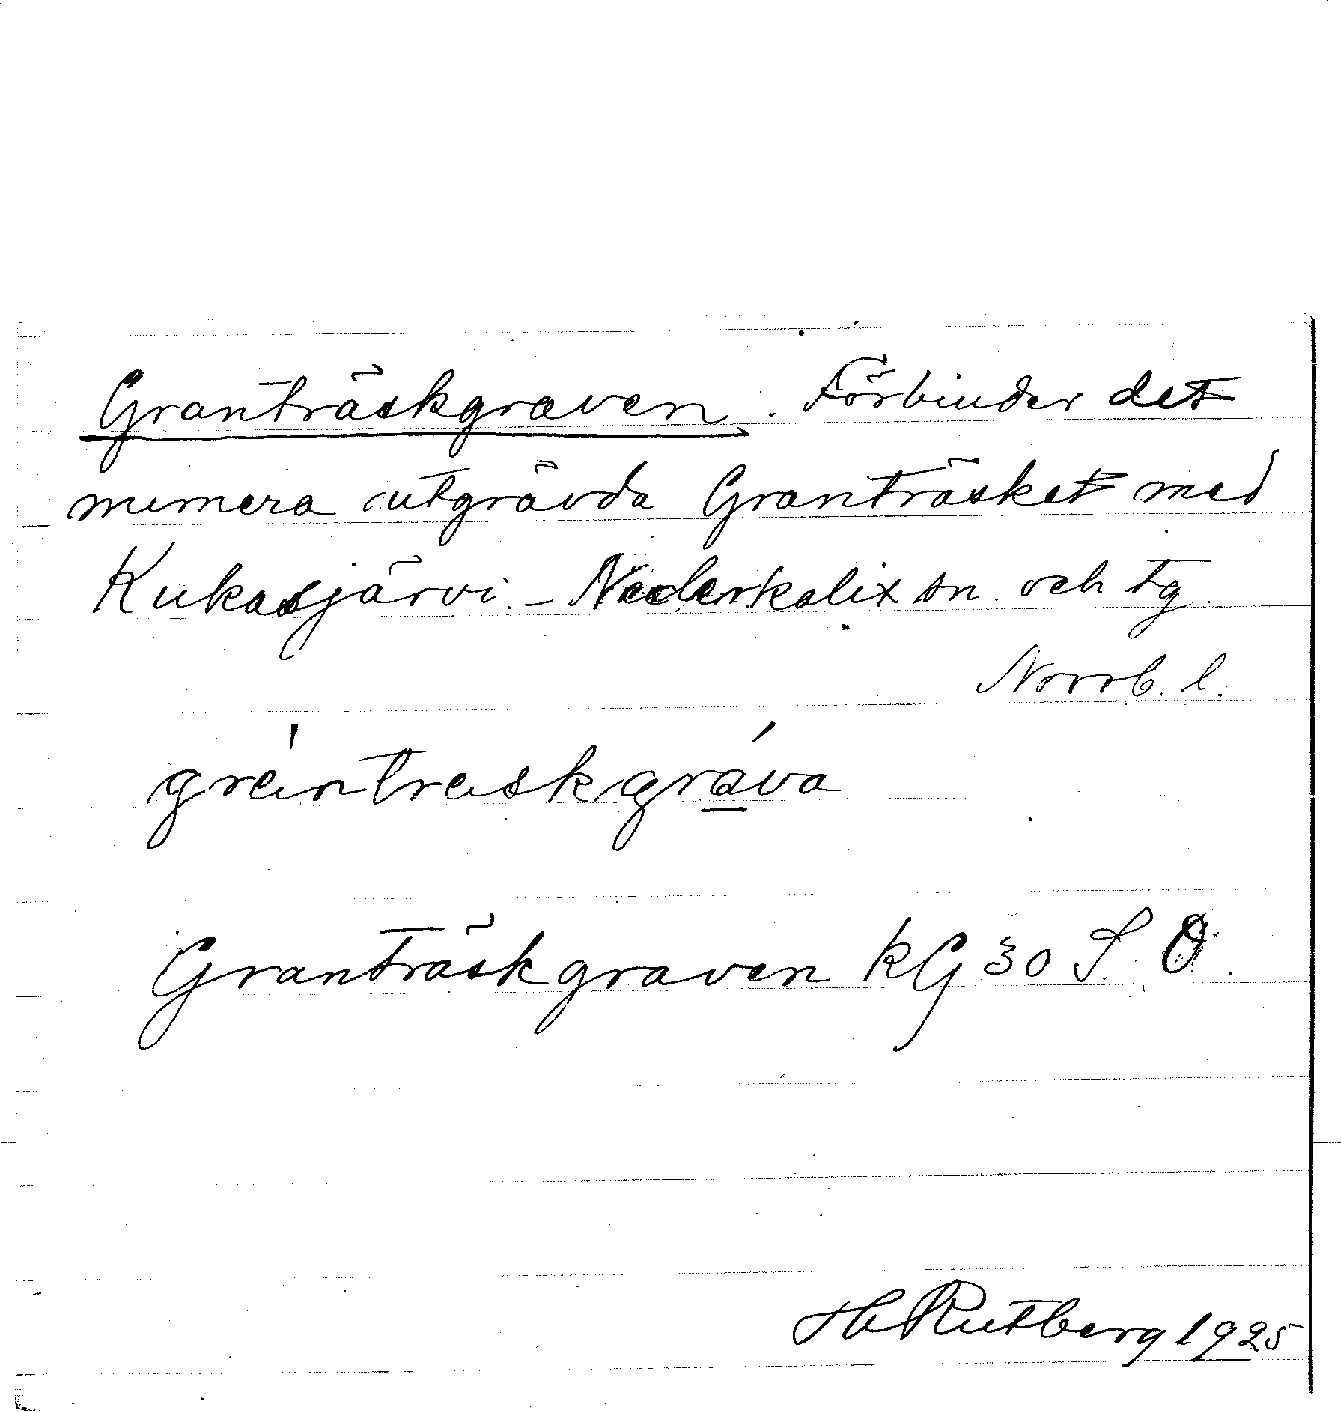 Granträskgraven. Förbinder det
numera utgrävda Granträsket med
Kukasjärvi. – Nederkalix sn och tg
Norrb. l.
gräntreskgrava
Granträskgraven kG 30 S. O.
H Rutberg 1925